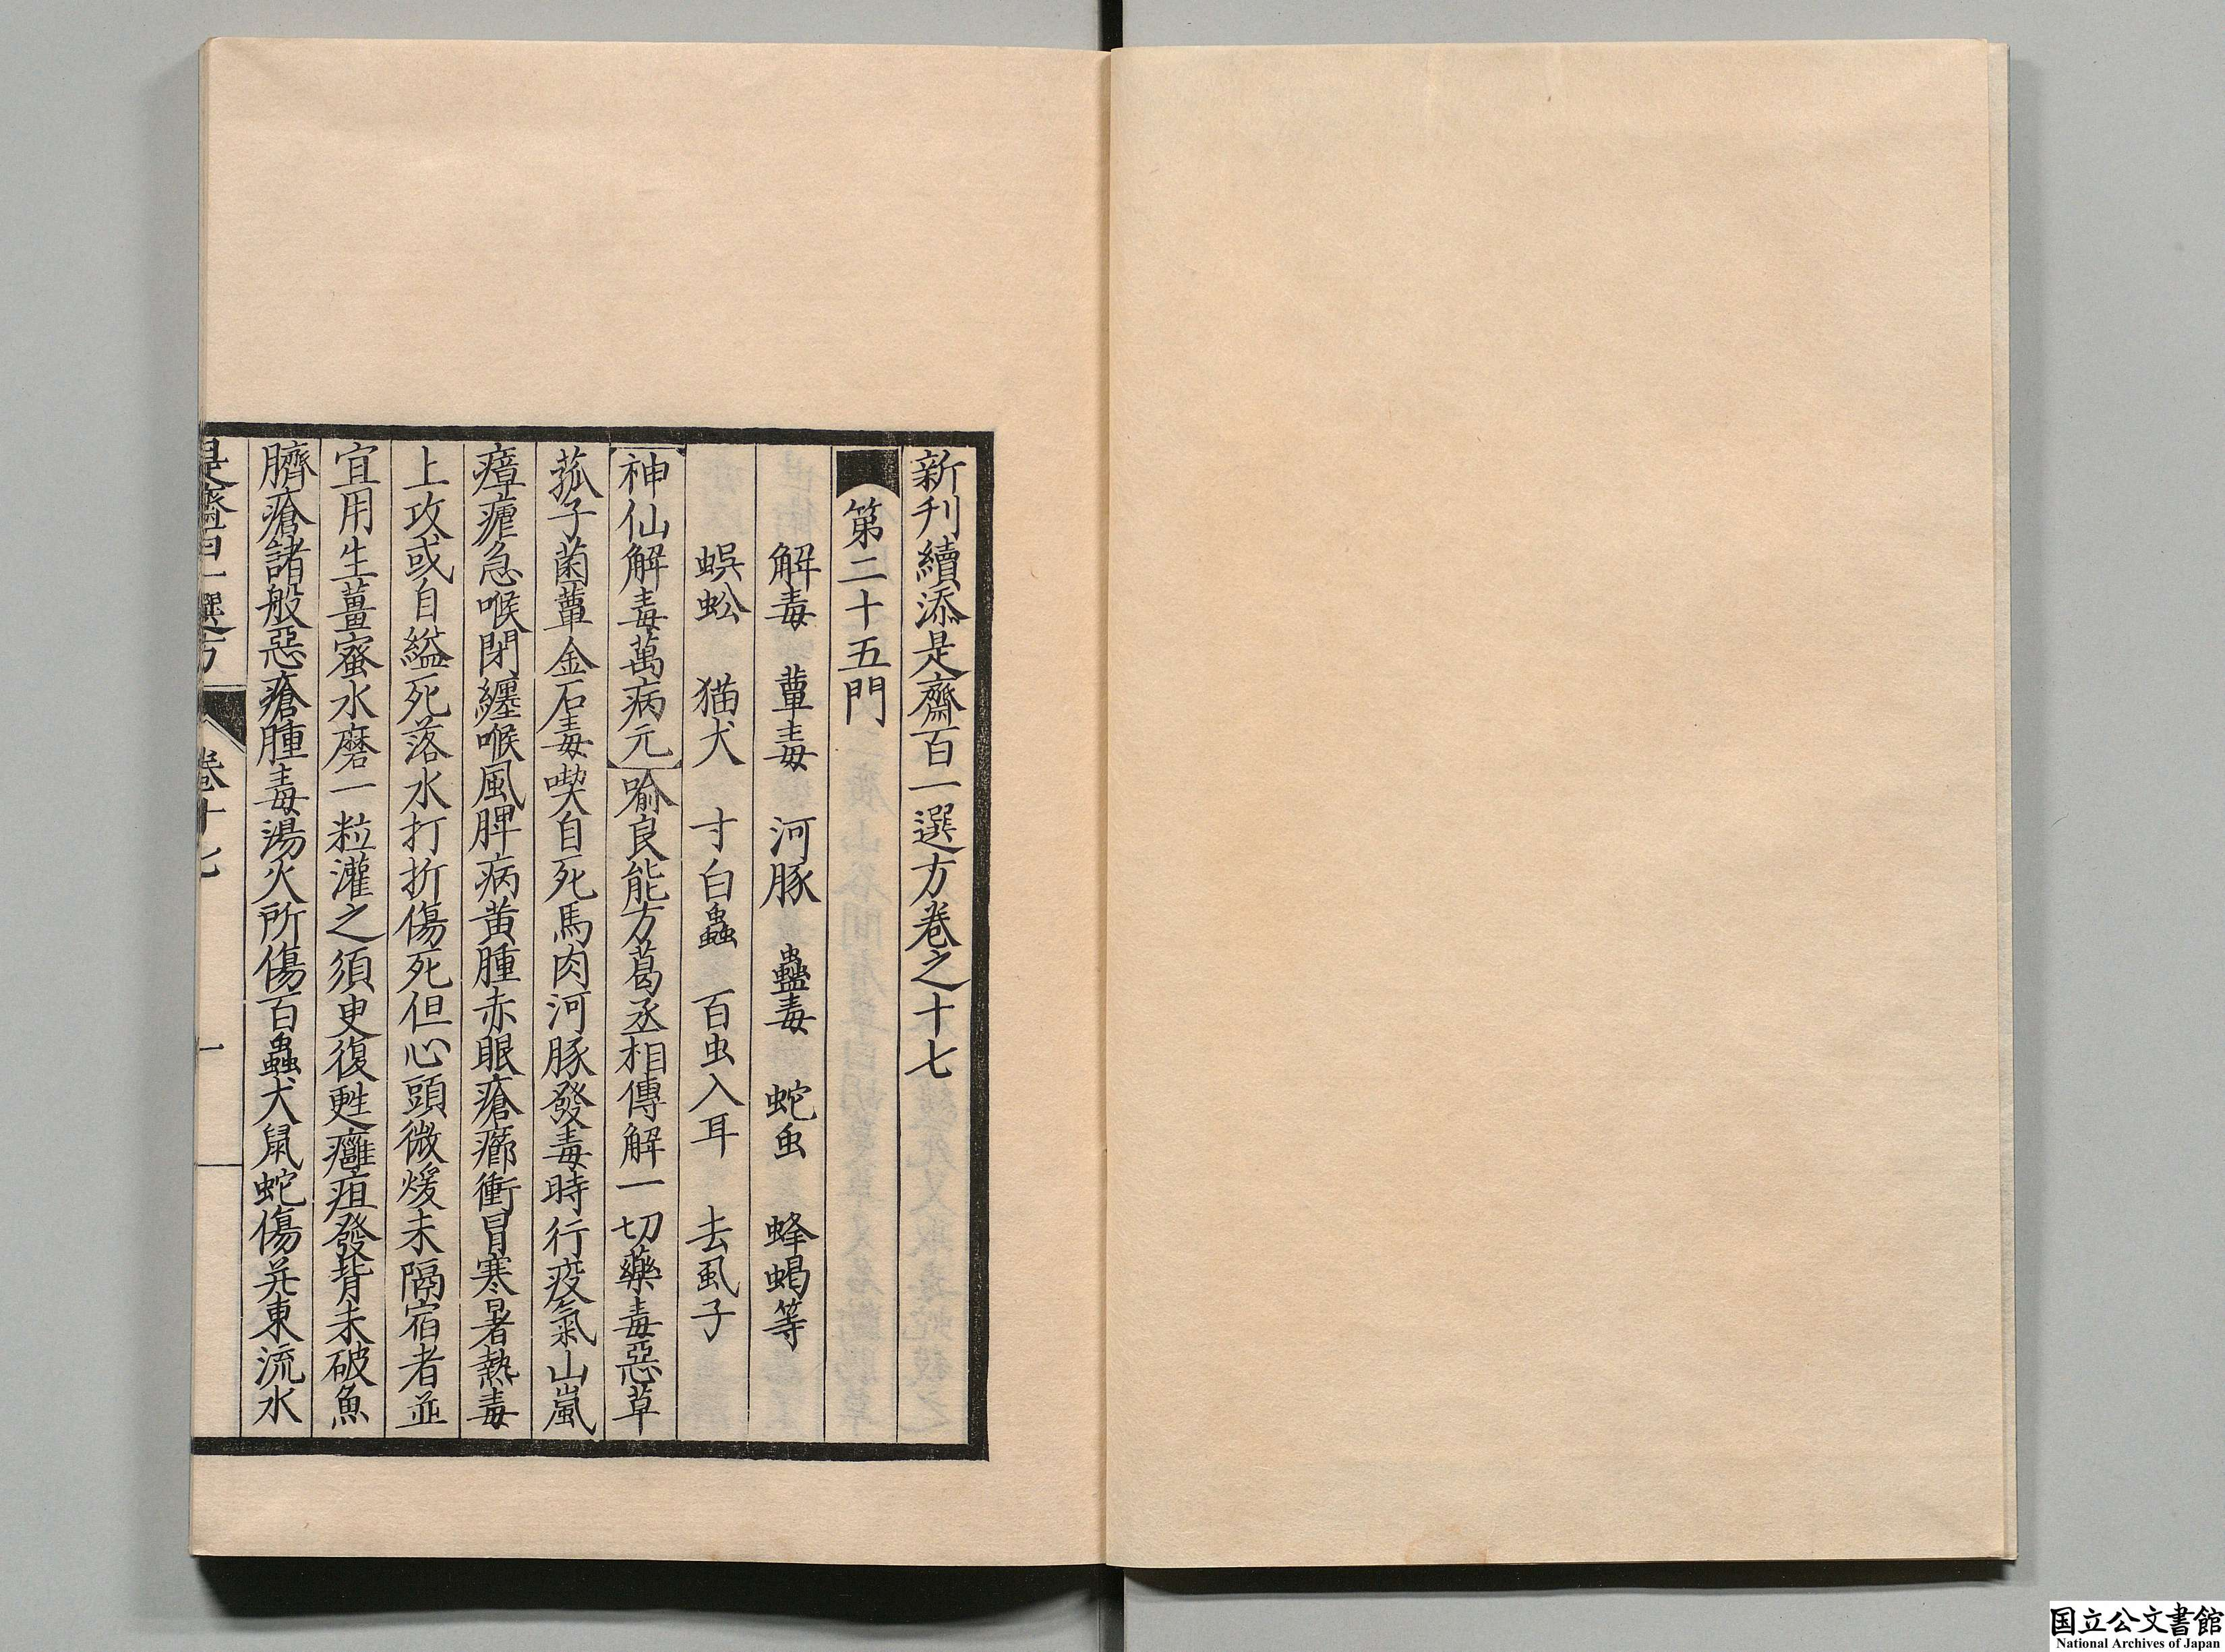 新刊續添是齋百一選方卷之十七
第二十五門
解毒　蕈毒　河豚　蠱毒　蛇虫　蜂蝎等
蜈蚣　猫犬　寸白蟲　百虫入耳　去虱子
神仙解毒萬病元 喻良能方葛丞相傳解一切藥毒惡草
菰子菌蕈金石毒喫自死馬肉河豚發毒時行疫氣山嵐
瘴瘧急喉閉纏喉風脾病黃腫赤眼瘡癤衝冒寒暑熱毒
上攻或自縊死落水打折傷死但心頭微煖未隔宿者並
宜用生薑蜜水磨一粒灌之須臾復甦癰疽發背未破魚
臍瘡諸般惡瘡腫毒湯火所傷百蟲犬鼠蛇傷并東流水
是齋百一選方　卷十七　一
国立公文書館
National Archives of Japan